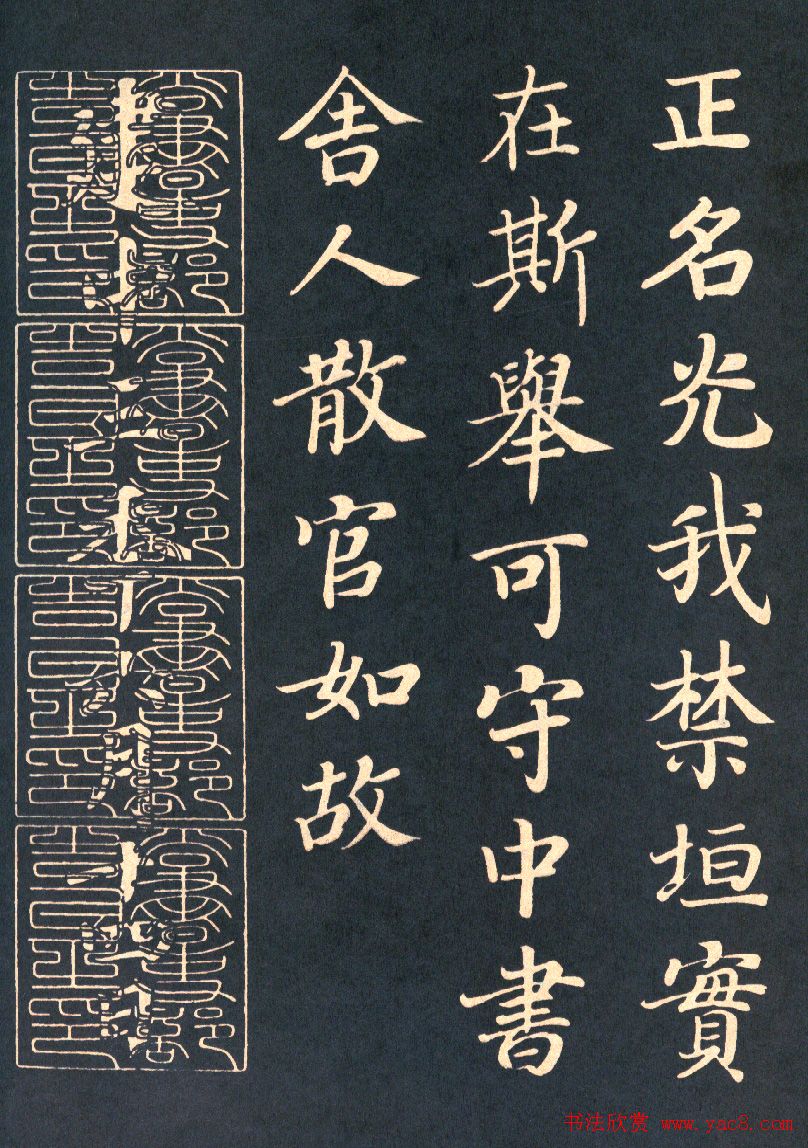 正名光我禁垣實
在斯舉可守中書
舍人散官如故
书法欣赏 www.yac8.com